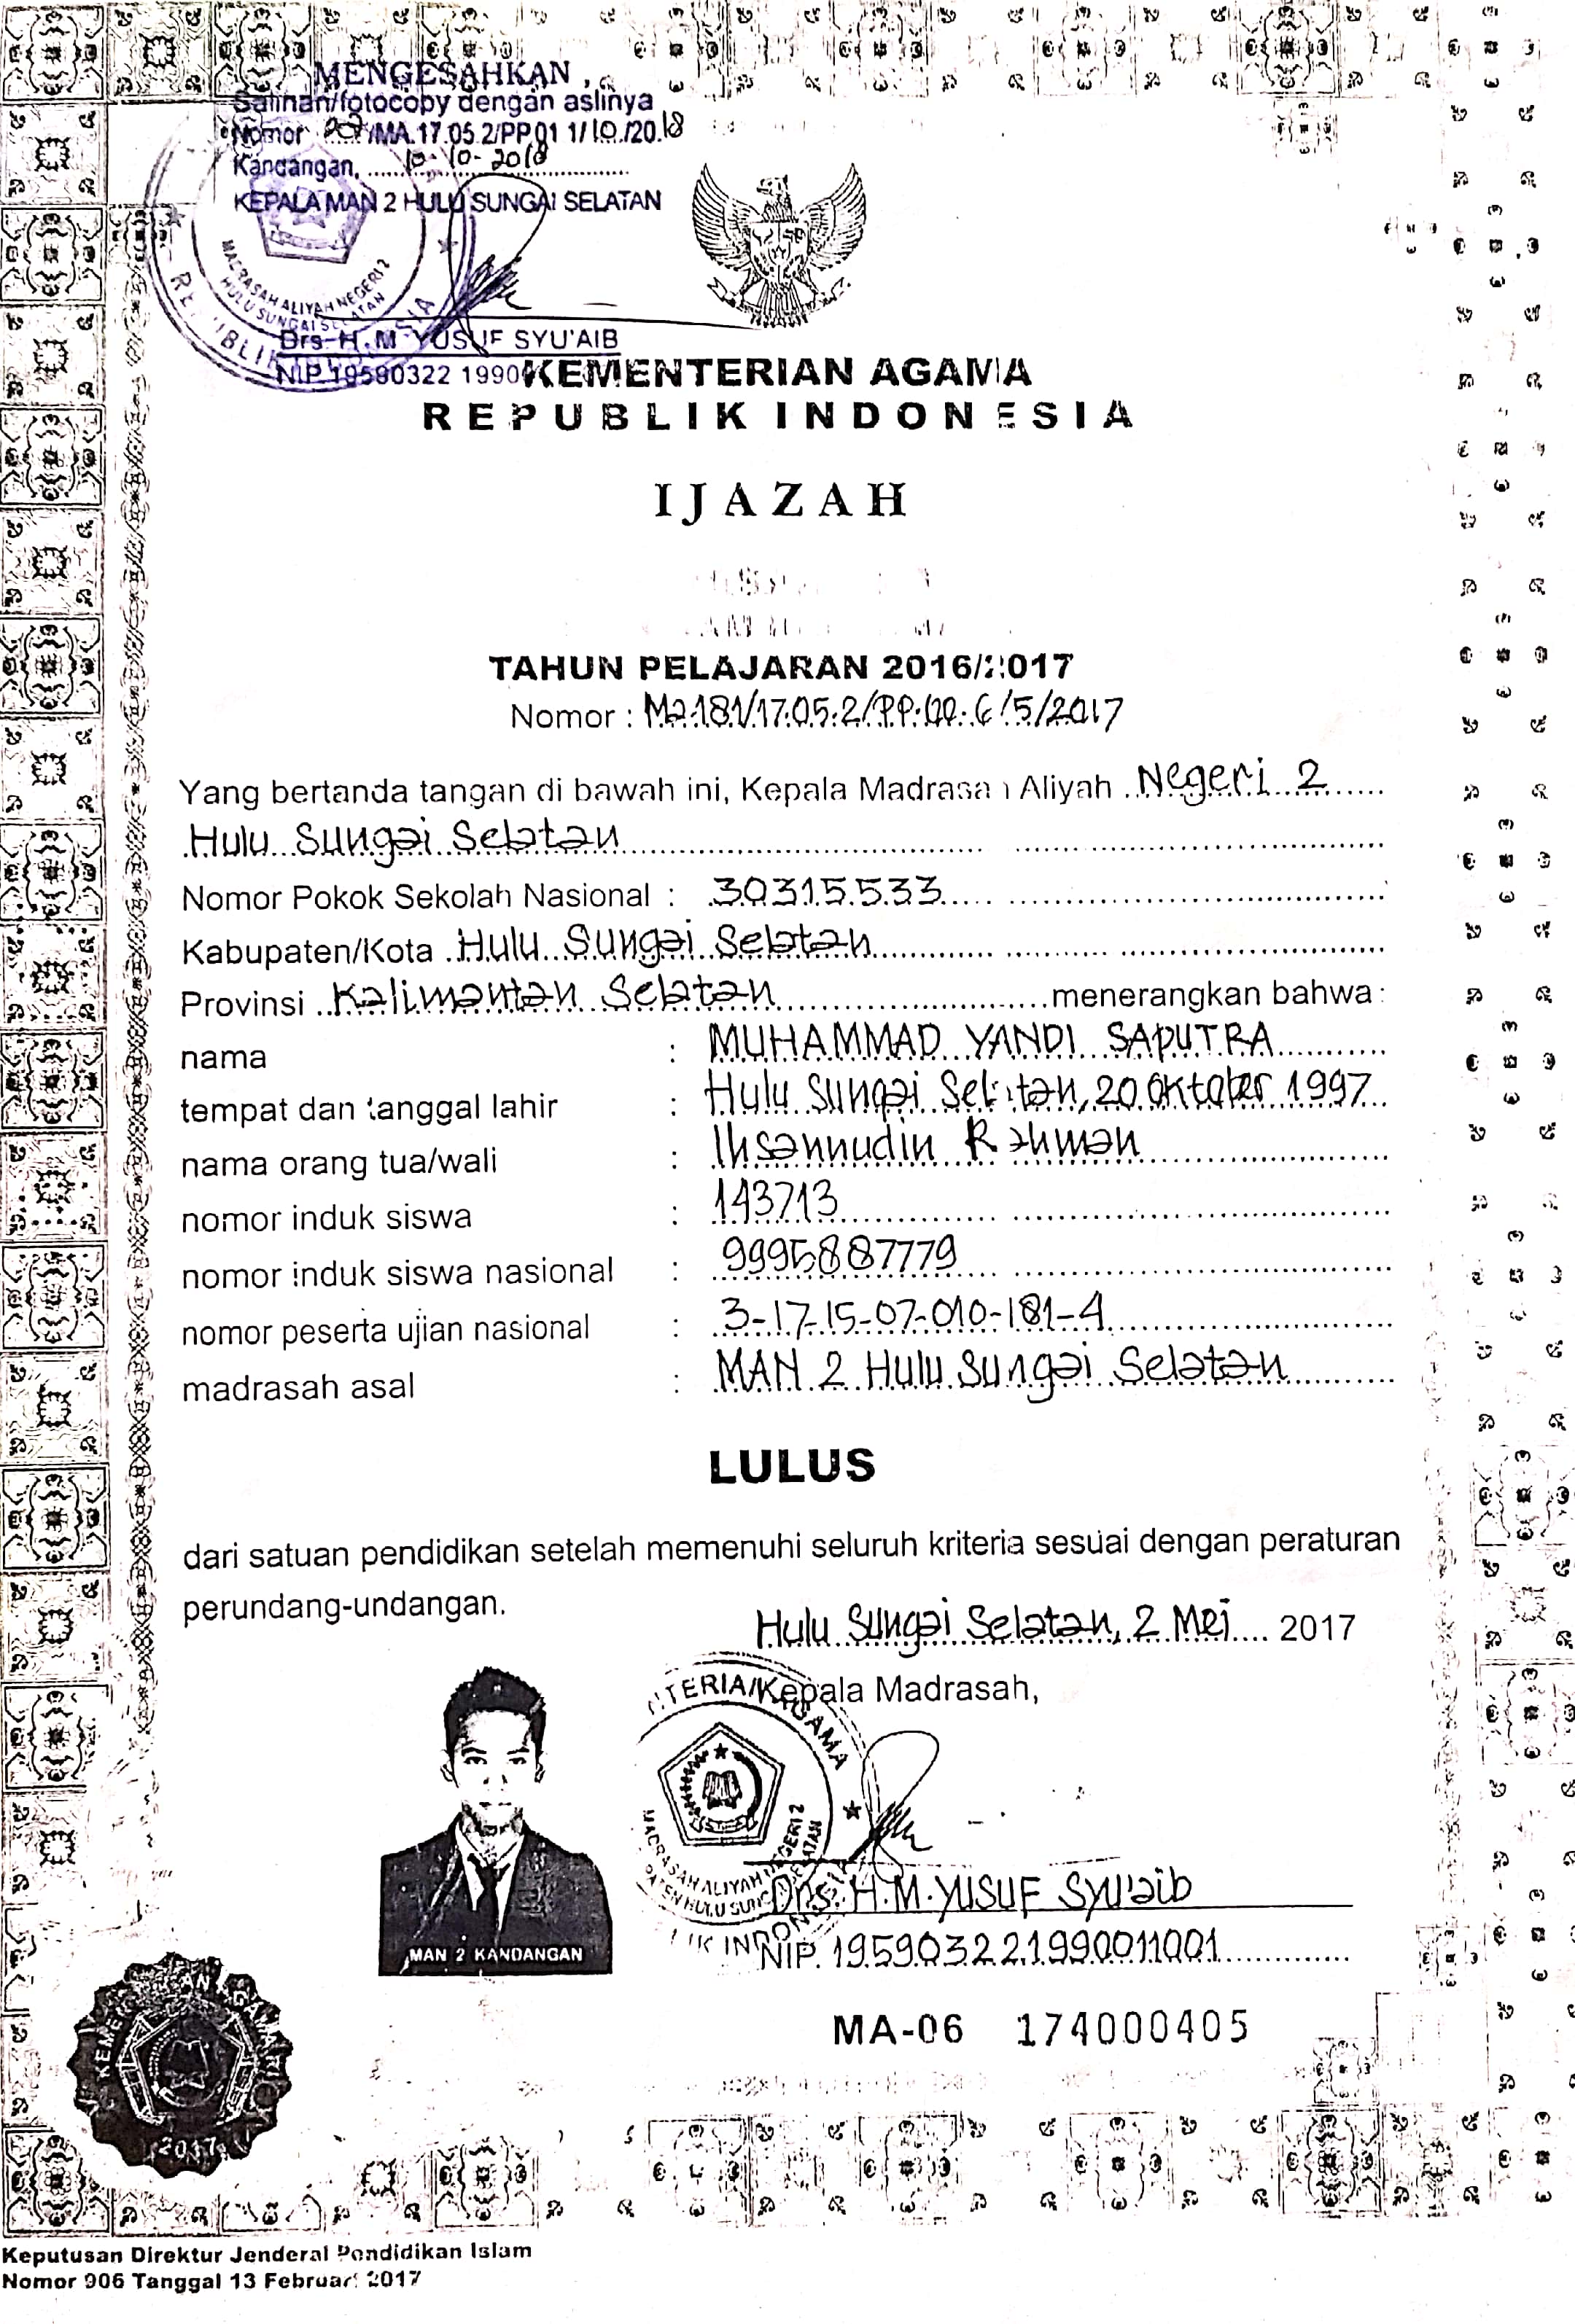 MENGESAHKAN
Salinan/fotocopy dengan aslinya
Nomor /MA.17.05.2/PP.01 1/10./20.18
Kandangan, 10-10-2018
KEPALA MAN 2 HULU SUNGAI SELATAN
MADRASAH ALIYAH NEGERI 2
HULU SUNGAI SELATAN
REPUBLIK INDONESIA
Drs. H. M YUSUF SYU'AIB
NIP 19590322 1990
KEMENTERIAN AGAMA
REPUBLIK INDONESIA
IJAZAH
TAHUN PELAJARAN 2016/2017
Nomor : Ma.181/17.05.2/PP.00.6/5/2017
Yang bertanda tangan di bawah ini, Kepala Madrasah Aliyah Negeri 2
Hulu Sungai Selatan
Nomor Pokok Sekolah Nasional : 30315533
Kabupaten/Kota Hulu Sungai Selatan
Provinsi Kalimantan Selatan menerangkan bahwa :
nama : MUHAMMAD YANDI SAPUTRA
tempat dan tanggal lahir : Hulu Sungai Selatan, 20 Oktober 1997
nama orang tua/wali : Ihsannudin Rahman
nomor induk siswa : 143713
nomor induk siswa nasional : 9995887779
nomor peserta ujian nasional : 3-17-15-07-010-181-4
madrasah asal : MAN 2 Hulu Sungai Selatan
LULUS
dari satuan pendidikan setelah memenuhi seluruh kriteria sesuai dengan peraturan
perundang-undangan.
Hulu Sungai Selatan, 2 Mei 2017
Kepala Madrasah,
AGAMA
MADRASAH ALIYAH NEGERI 2
HULU SUNGAI SELATAN
Drs. H.M. YUSUF Syu'aib
NIP. 195903221990011001
MAN 2 KANDANGAN
MA-06 174000405
2017
Keputusan Direktur Jenderal Pendidikan Islam
Nomor 906 Tanggal 13 Februari 2017